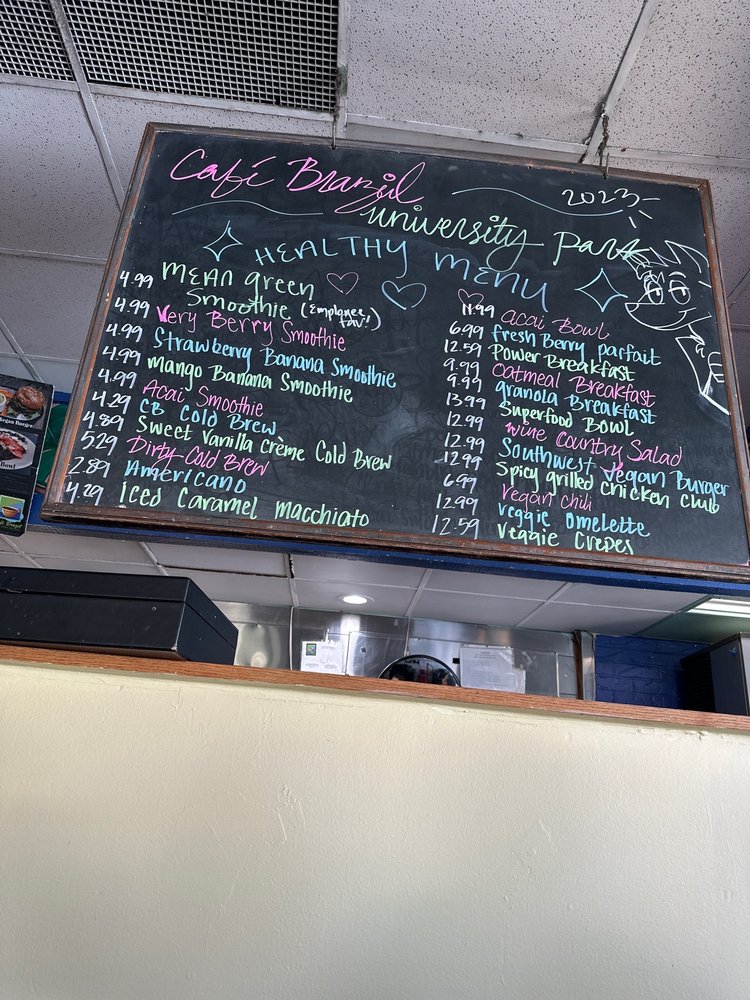 Café Brazil
2023
university park
HEALTHY MENU
4.99 Mean green
Smoothie (Employee fav!)
4.99 Very Berry Smoothie
4.99 Strawberry Banana Smoothie
4.99 mango Banana Smoothie
4.99 Acai Smoothie
4.29 CB Cold Brew
4.89 Sweet Vanilla Crème Cold Brew
5.29 Dirty Cold Brew
2.89 Americano
4.29 Iced Caramel macchiato
11.99 acai Bowl
6.99 fresh Berry parfait
12.59 Power Breakfast
9.99 Oatmeal Breakfast
9.99 granola Breakfast
13.99 Superfood Bowl
12.99 wine Country Salad
12.99 Southwest Vegan Burger
12.99 Spicy grilled Chicken Club
6.99 Vegan Chili
12.99 veggie Omelette
12.59 veggie Crepes
Bowl